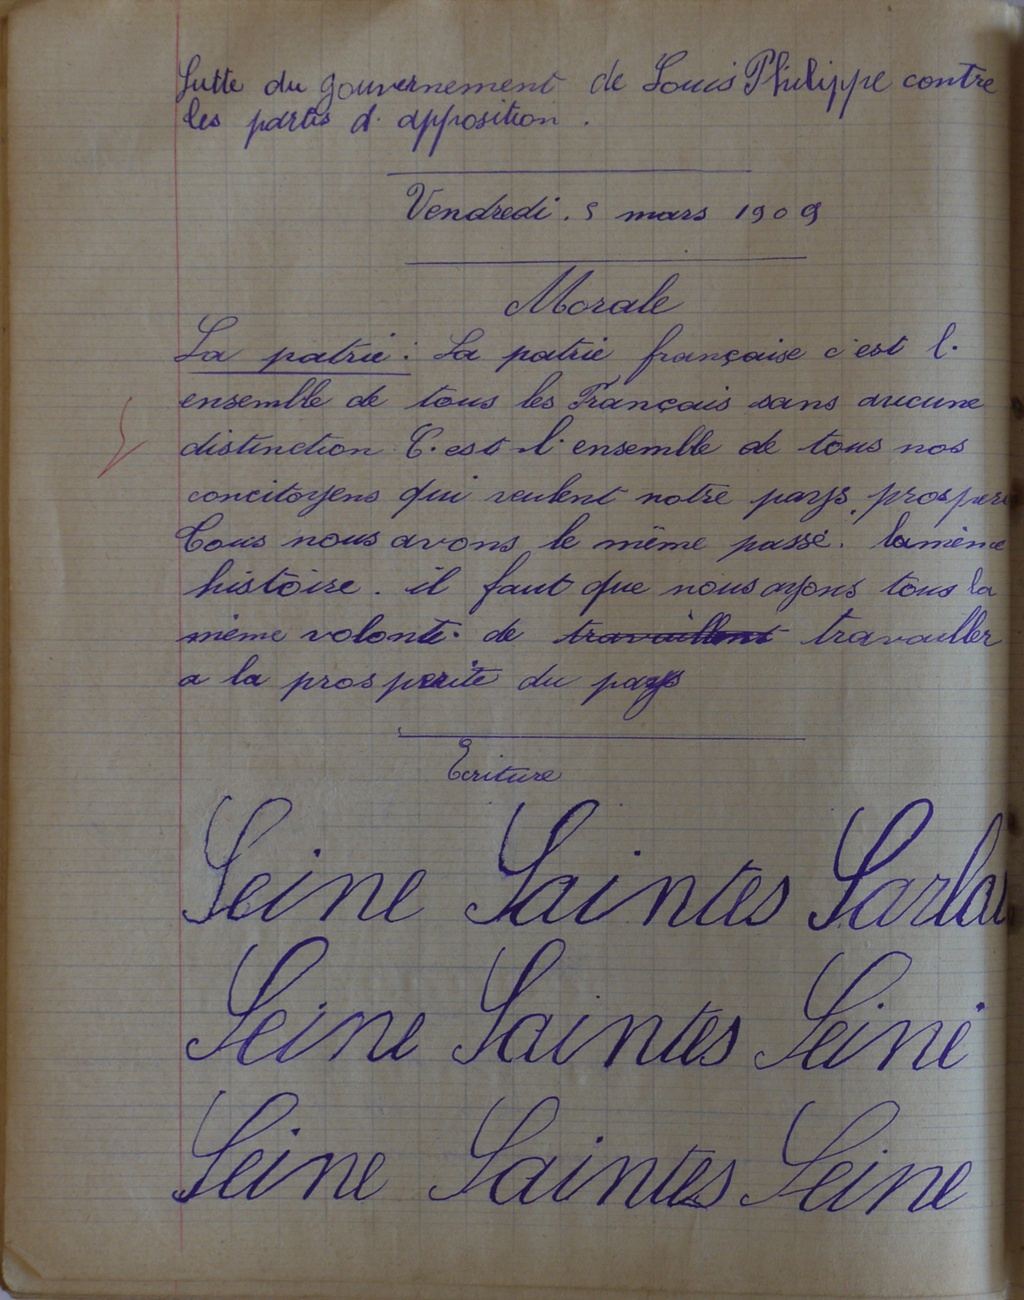 Lutte du gouvernement de Louis Philippe contre
les partis d'apposition.
Vendredi. 5 mars 1909
Morale
La patrie : La patrie française c'est l'
ensemble de tous les Français sans aucune
distinction C'est l'ensemble de tous nos
concitoyens qui veulent notre pays prospere
Tous nous avons le même passé. la même
histoire. il faut que nous ayons tous la
même volonté de travaillent travailler
a la prosperité du pays
Ecriture
Seine Saintes Sarlat
Seine Saintes Seine
Seine Saintes Seine